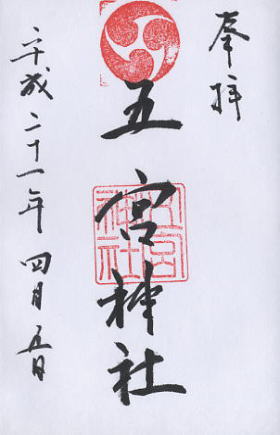 奉拝
五宮神社
五宮神社
平成二十一年四月五日